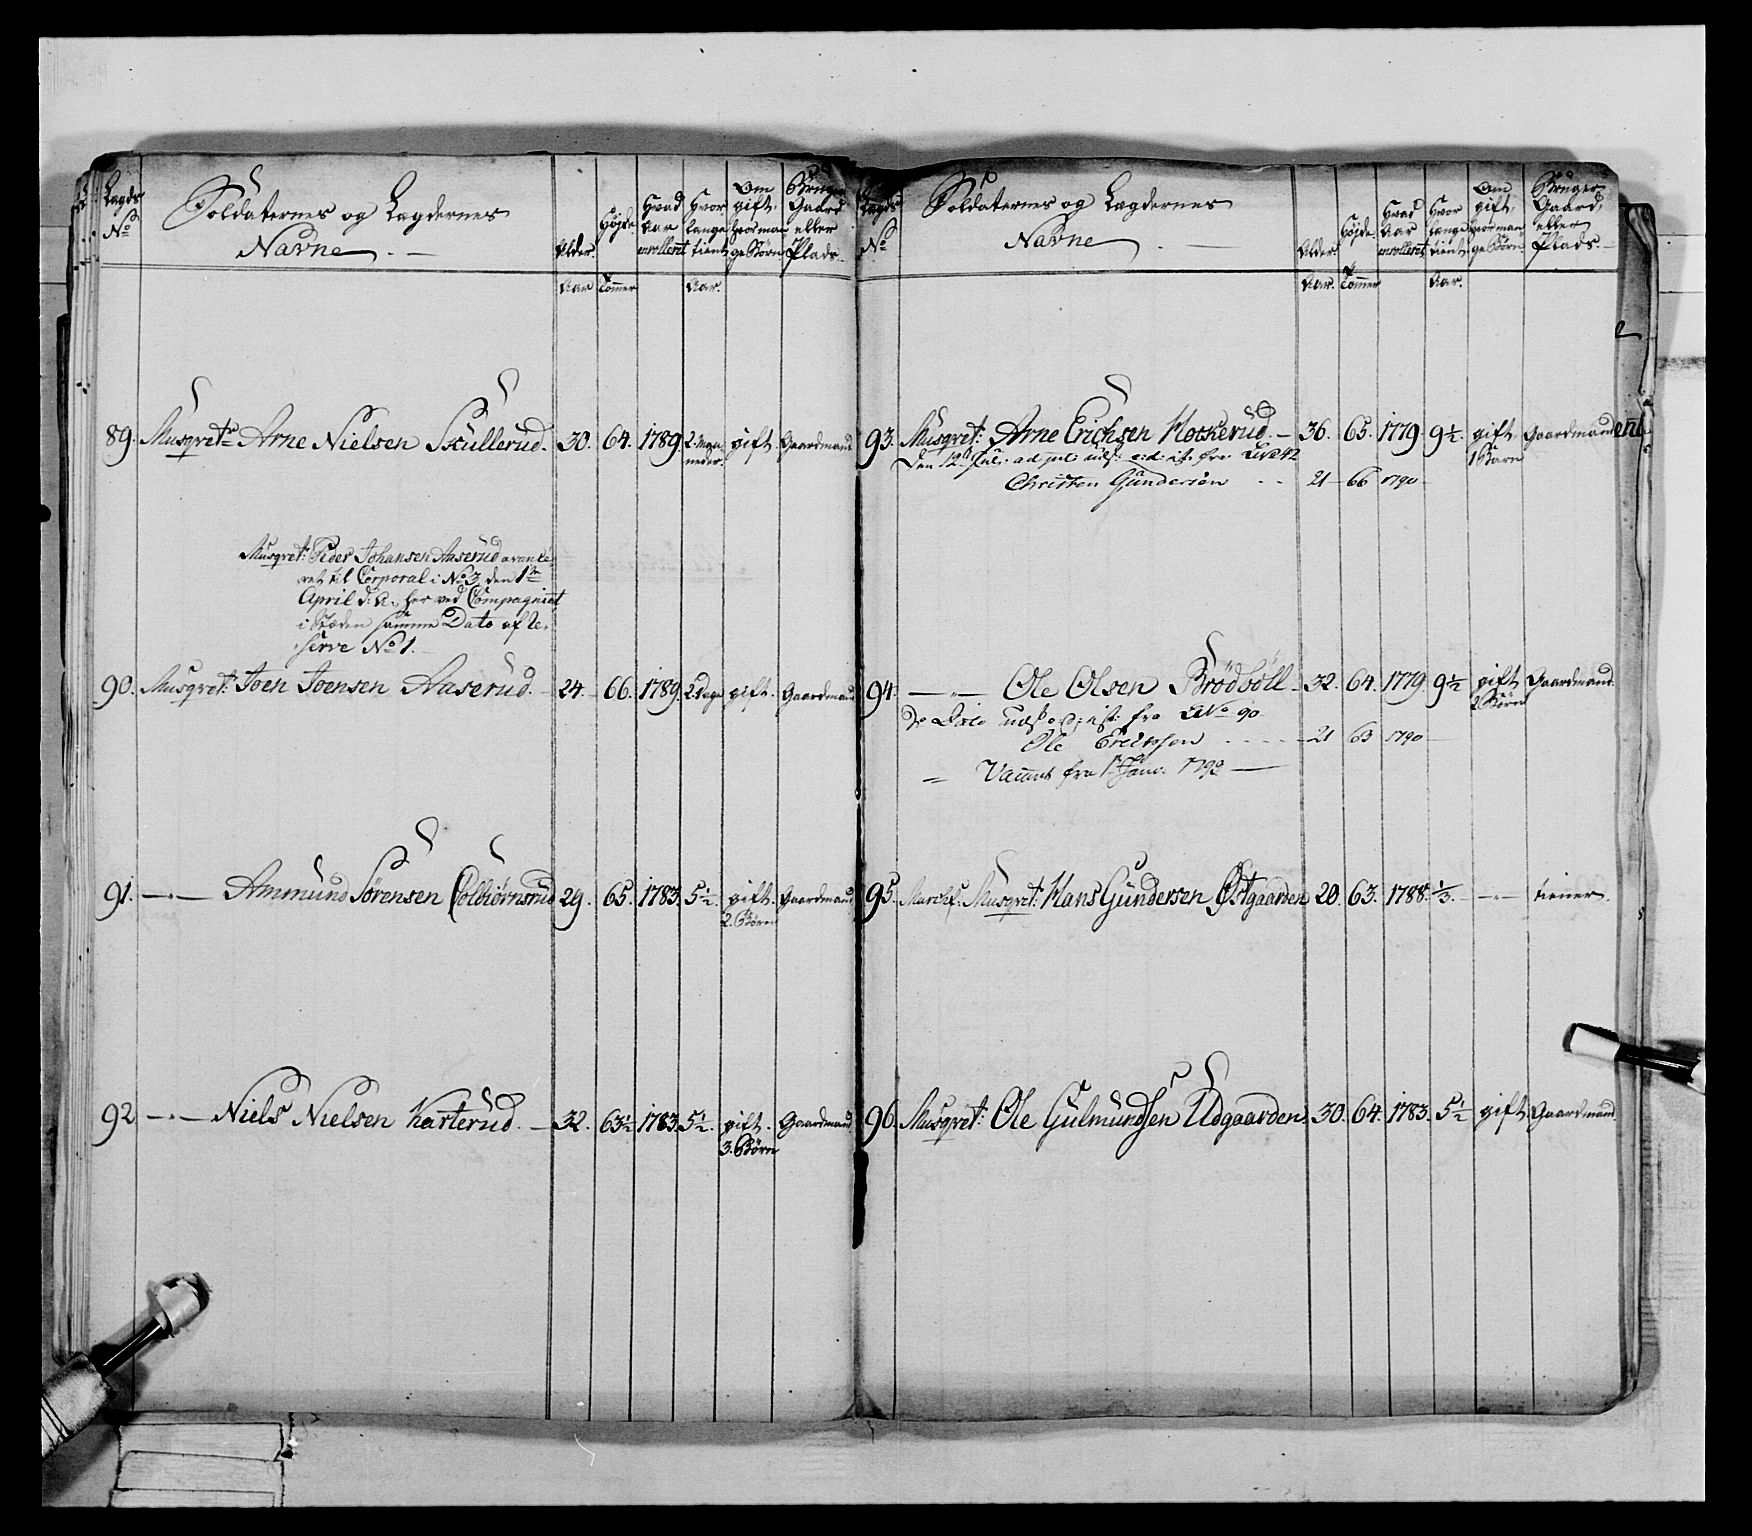 Lagds
No
Soldaternes og Lagdernes
Navne
Alder.
Højde
Hvad
Aar
enrolleret
Hvor
lange
tient
Om
gift,
hvor man
ge Børn
Bruger
Gaard
eller
Plads.
Aar
Tommer
Aar.
89. Musqret: Arne Nielsen Skullerud. 30. 64. 1789. 2 Maa- gift. Gaardmand
neder.
Musqret: Peder Johansen Aaserud avance-
ret til Corporal i No 3 den 1te
April d: A., her ved Compagniet
i Stæden samme Dato af Re-
serve No 1.
90. Musqret: Joen Joensen Aaserud. 24. 66. 1789. 2 dage gift. Gaardmand
91. —"— Ammund Sørensen Colbiørnsrud 29. 65. 1783. 5½. gift. Gaardmand
2. Børn
92 —"— Niels Nielsen Karterud. — 32. 63½. 1783. 5½. gift. Gaardmand.
3. Børn
Lagds
No
Soldaternes og Lagdernes
Navne
Alder.
Højde
Hvad
Aar
enrolleret
Hvor
lange
tient
Om
gift,
hvor man
ge Børn
Bruger
Gaard,
eller
Plads.
Aar.
Tommer
Aar.
93. Musqret: Arne Erichsen Kokkerud. — 36. 65. 1779. 9½. gift Gaardmand
1 Barn
Den 12 fra 42
Christen Gundersen 21 66 1790
94. —"— Ole Olsen Brødbøll 32. 64. 1779. 9½ gift Gaardmand.
2 Børn
fra No 90
Ole Erichsen 21 63 1790
= Vacant fra 1 Janv. 1792
95. Musqret: Hans Gundersen Østgaarden 20. 63. 1788. ⅓. —"— tiener.
96. Musqret: Ole Gulmundsen Udgaarden. 30. 64. 1783. 5½ gift. Gaardmand.